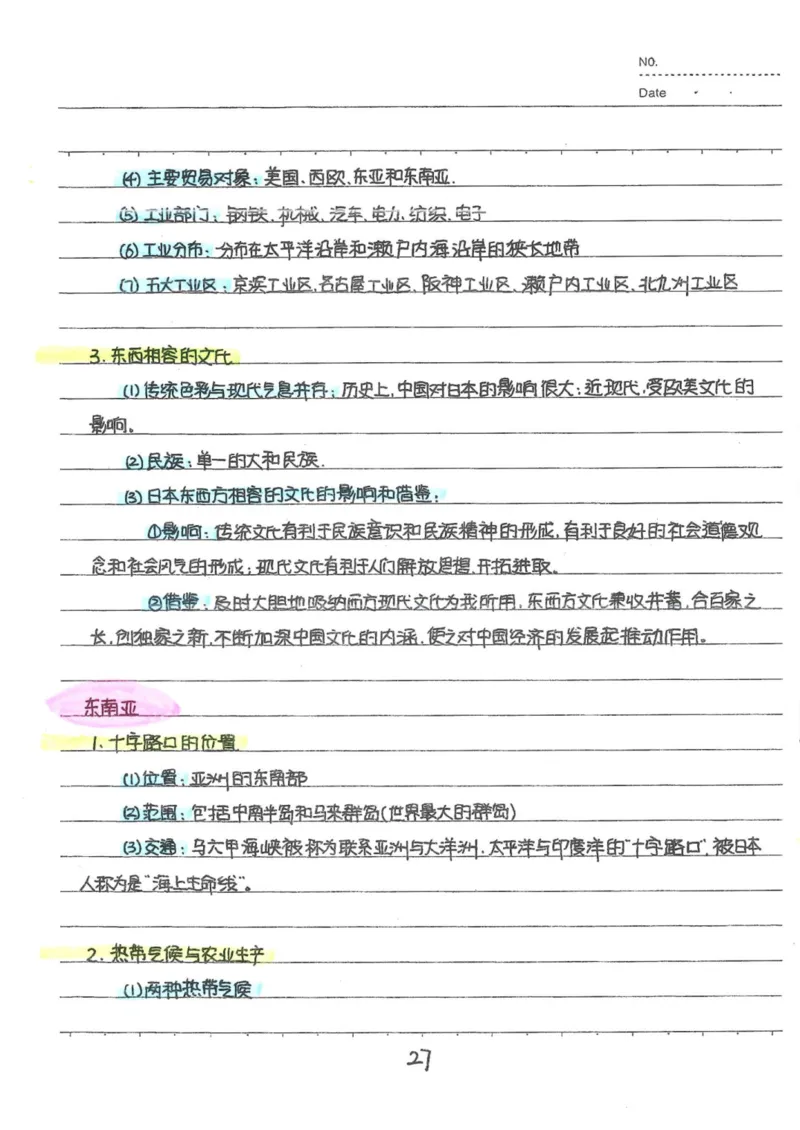 NO.
Date
(4) 主要贸易对象：美国、西欧、东亚和东南亚.
(5) 工业部门：钢铁、机械、汽车、电力、纺织、电子
(6) 工业分布：分布在太平洋沿岸和濑户内海沿岸的狭长地带
(7) 五大工业区：京滨工业区、名古屋工业区、阪神工业区、濑户内工业区、北九州工业区
3. 东西相容的文化
(1) 传统色彩与现代气息并存：历史上,中国对日本的影响很大；近现代,受欧美文化的
影响。
(2) 民族：单一的大和民族.
(3) 日本东西方相容的文化的影响和借鉴：
①影响：传统文化有利于民族意识和民族精神的形成,有利于良好的社会道德观
念和社会风气的形成；现代文化有利于人们解放思想、开拓进取。
②借鉴：及时大胆地吸纳西方现代文化为我所用,东西方文化兼收并蓄,合百家之
长,创独家之新,不断加深中国文化的内涵,使之对中国经济的发展起推动作用。
东南亚
1. 十字路口的位置
(1) 位置：亚洲的东南部
(2) 范围：包括中南半岛和马来群岛(世界最大的群岛)
(3) 交通：马六甲海峡被称为联系亚洲与大洋洲、太平洋与印度洋的“十字路口”,被日本
人称为是“海上生命线”。
2. 热带气候与农业生产
(1) 两种热带气候
27